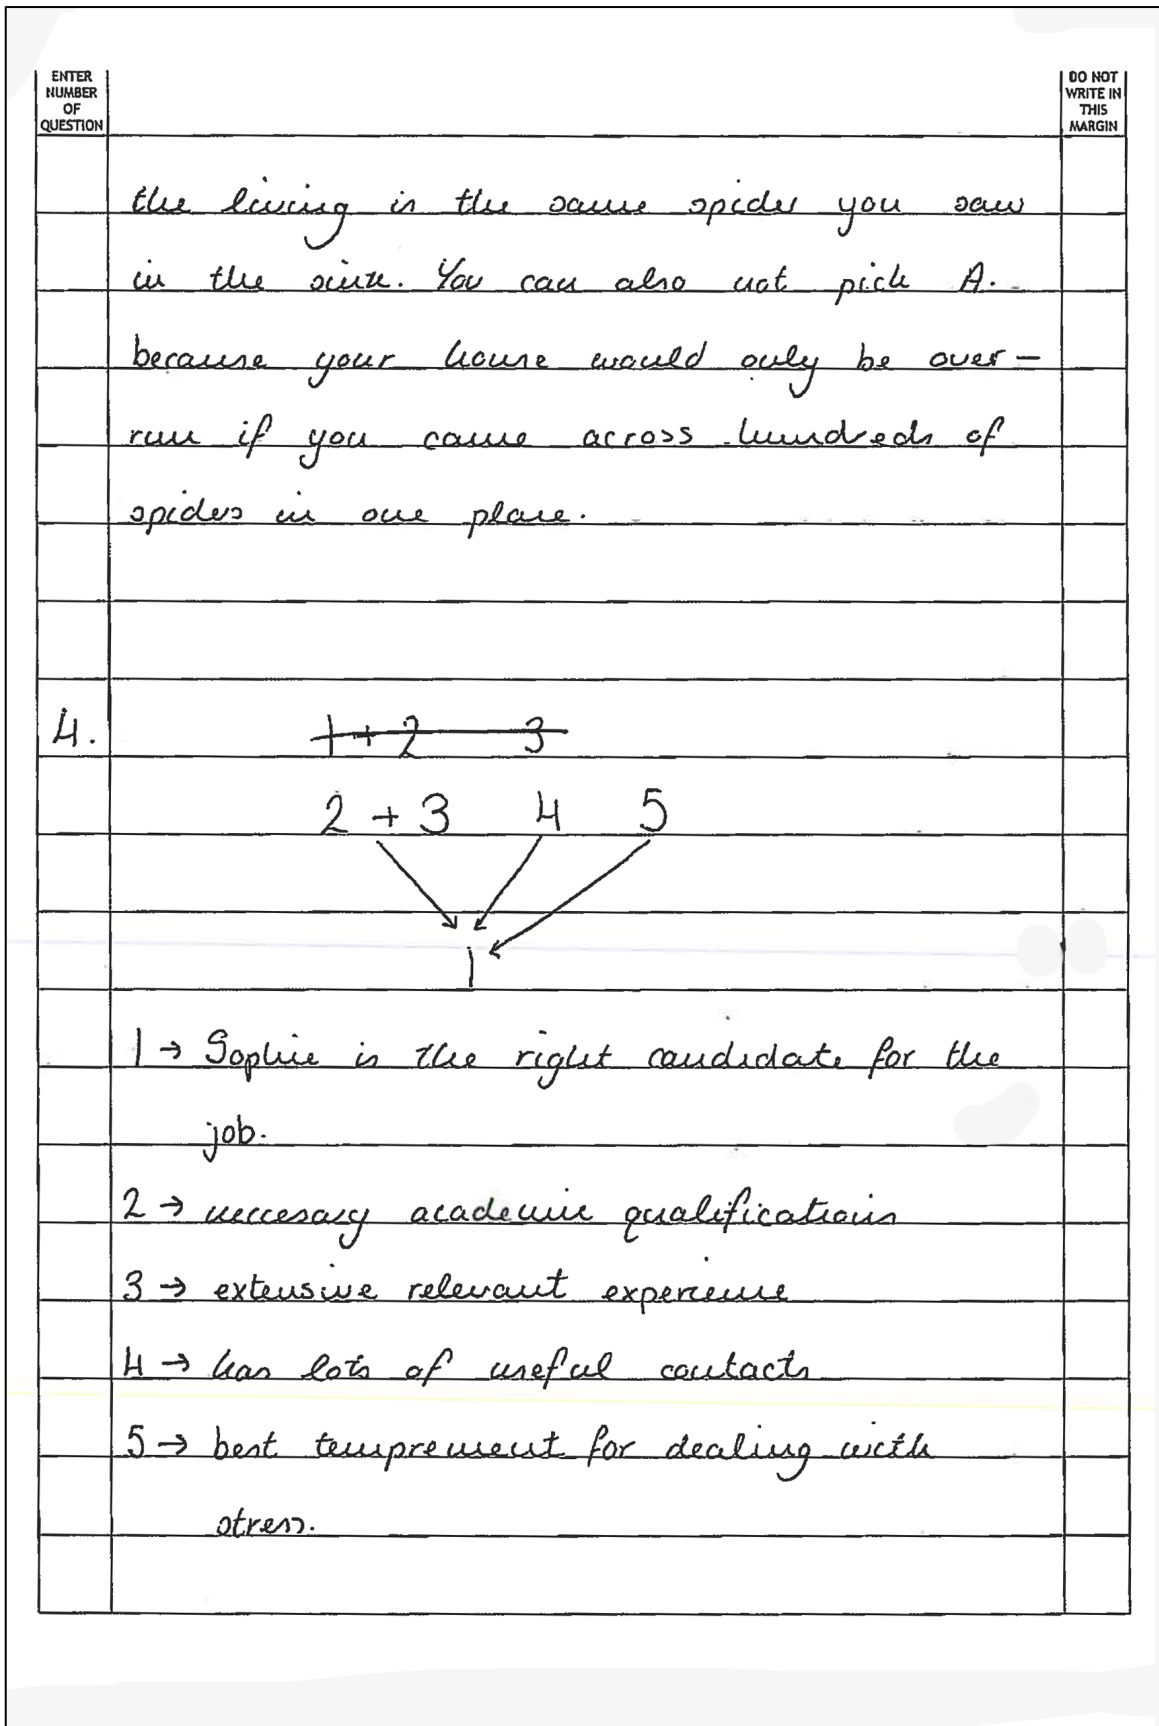 ENTER
NUMBER
OF
QUESTION
DO NOT
WRITE IN
THIS
MARGIN
the living is the same spider you saw
in the sink. You can also not pick A.
because your house would only be over-
run if you came across hundreds of
spiders in one place.
4.
1 + 2 3
2 + 3 4 5
1
1 → Sophie is the right candidate for the
job.
2 → neccesary academic qualifications
3 → extensive relevant experience
4 → has lots of useful contacts
5 → best temprement for dealing with
stress.